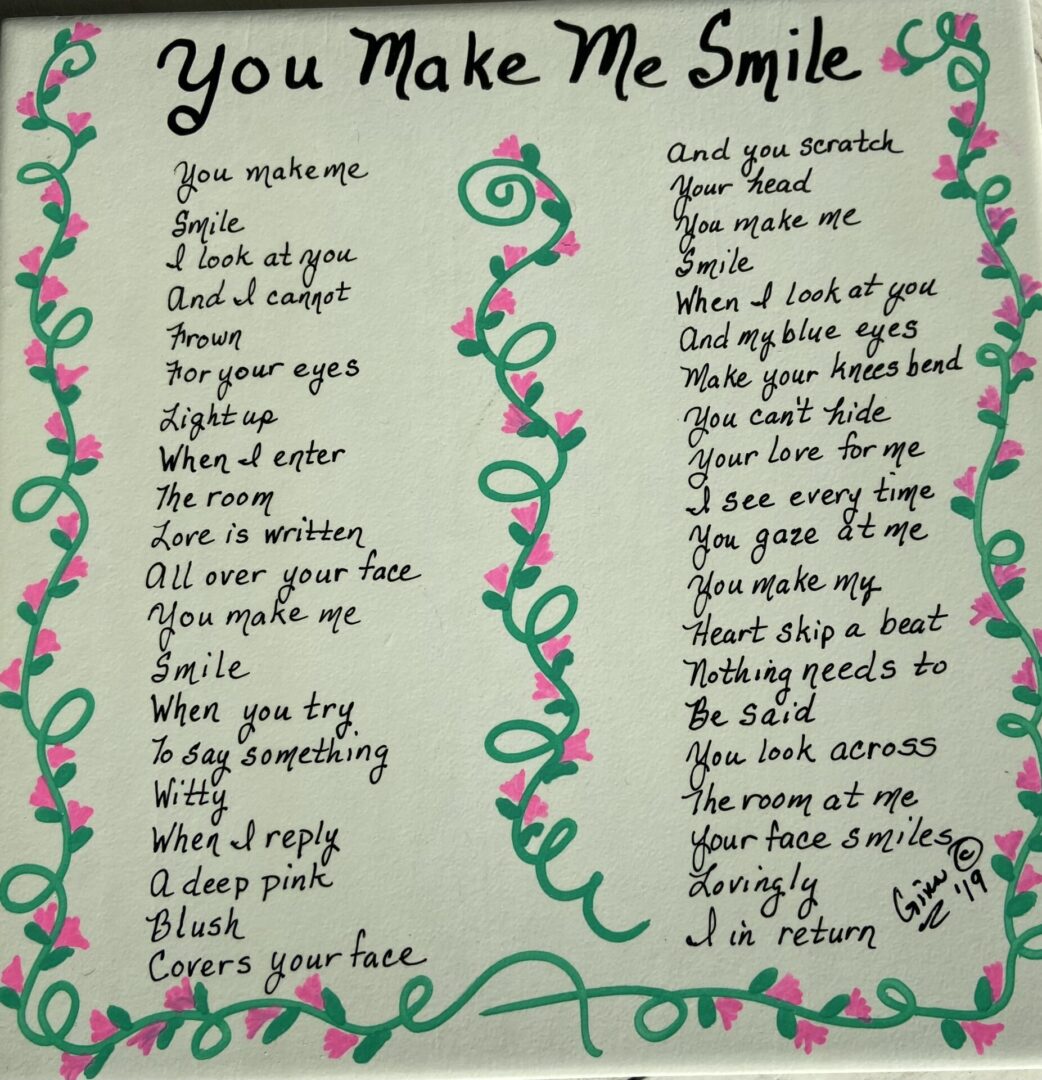 You Make Me Smile
You make me
Smile
I look at you
And I cannot
Frown
For your eyes
Light up
When I enter
The room
Love is written
All over your face
You make me
Smile
When you try
To say something
Witty
When I reply
A deep pink
Blush
Covers your face
And you scratch
Your head
You make me
Smile
When I look at you
And my blue eyes
Make your knees bend
You can't hide
Your love for me
I see every time
You gaze at me
You make my
Heart skip a beat
Nothing needs to
Be said
You look across
The room at me
Your face smiles
Lovingly
I in return
©
Gina
'19